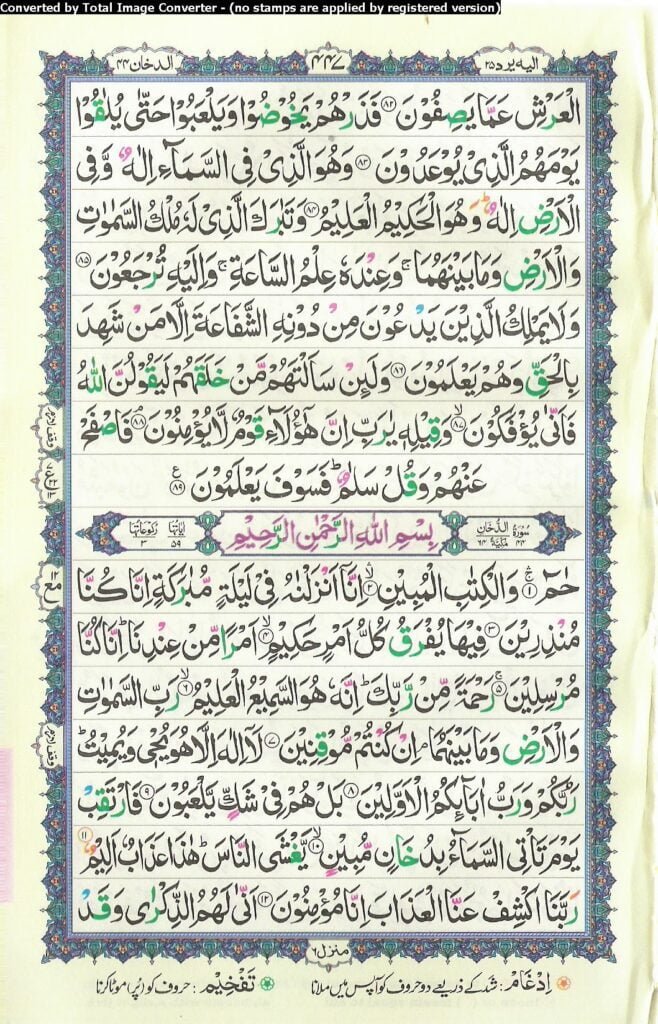 Converted by Total Image Converter - (no stamps are applied by registered version)
الیه یرد ۲۵
۴۴۷
الدخان ۴۴
الْعَرْشِ عَمَّا يَصِفُوْنَ ۸۲ فَذَرْهُمْ يَخُوْضُوْا وَيَلْعَبُوْا حَتّٰى يُلٰقُوْا
يَوْمَهُمُ الَّذِىْ يُوْعَدُوْنَ ۸۳ وَهُوَ الَّذِىْ فِى السَّمَآءِ اِلٰهٌ وَّفِى
الْاَرْضِ اِلٰهٌ ؕ وَهُوَ الْحَكِيْمُ الْعَلِيْمُ ۸۴ وَتَبٰرَكَ الَّذِىْ لَهٗ مُلْكُ السَّمٰوٰتِ
وَالْاَرْضِ وَمَا بَيْنَهُمَا ۚ وَعِنْدَهٗ عِلْمُ السَّاعَةِ ۚ وَاِلَيْهِ تُرْجَعُوْنَ ۸۵
وَلَا يَمْلِكُ الَّذِيْنَ يَدْعُوْنَ مِنْ دُوْنِهِ الشَّفَاعَةَ اِلَّا مَنْ شَهِدَ
بِالْحَقِّ وَهُمْ يَعْلَمُوْنَ ۸۶ وَلَئِنْ سَاَلْتَهُمْ مَّنْ خَلَقَهُمْ لَيَقُوْلُنَّ اللّٰهُ
فَاَنّٰى يُؤْفَكُوْنَ ۸۷ۙ وَقِيْلِهٖ يٰرَبِّ اِنَّ هٰٓؤُلَآءِ قَوْمٌ لَّا يُؤْمِنُوْنَ ۘ ۸۸ فَاصْفَحْ
عَنْهُمْ وَقُلْ سَلٰمٌ ؕ فَسَوْفَ يَعْلَمُوْنَ ۸۹ ع
سُوْرَةُ الدُّخَانِ مَكِّيَّةٌ ۴۴ ۶۴
بِسْمِ اللّٰهِ الرَّحْمٰنِ الرَّحِيْمِ
اٰيَاتُهَا ۵۹ رُكُوْعَاتُهَا ۳
حٰمٓ ۱ۚۛ وَالْكِتٰبِ الْمُبِيْنِ ۲ۙۛ اِنَّاۤ اَنْزَلْنٰهُ فِىْ لَيْلَةٍ مُّبٰرَكَةٍ اِنَّا كُنَّا
مُنْذِرِيْنَ ۳ فِيْهَا يُفْرَقُ كُلُّ اَمْرٍ حَكِيْمٍ ۴ۙ اَمْرًا مِّنْ عِنْدِنَا ؕ اِنَّا كُنَّا
مُرْسِلِيْنَ ۵ۚ رَحْمَةً مِّنْ رَّبِّكَ ؕ اِنَّهٗ هُوَ السَّمِيْعُ الْعَلِيْمُ ۶ۙ رَبِّ السَّمٰوٰتِ
وَالْاَرْضِ وَمَا بَيْنَهُمَا ۘ اِنْ كُنْتُمْ مُّوْقِنِيْنَ ۷ لَاۤ اِلٰهَ اِلَّا هُوَ يُحْىٖ وَيُمِيْتُ ؕ
رَبُّكُمْ وَرَبُّ اٰبَآئِكُمُ الْاَوَّلِيْنَ ۸ بَلْ هُمْ فِىْ شَكٍّ يَّلْعَبُوْنَ ۹ فَارْتَقِبْ
يَوْمَ تَاْتِى السَّمَآءُ بِدُخَانٍ مُّبِيْنٍ ۱۰ۙ يَّغْشَى النَّاسَ ؕ هٰذَا عَذَابٌ اَلِيْمٌ ۱۱
رَبَّنَا اكْشِفْ عَنَّا الْعَذَابَ اِنَّا مُؤْمِنُوْنَ ۱۲ اَنّٰى لَهُمُ الذِّكْرٰى وَقَدْ
منزل ۶
اِدْغَام: شد کے ذریعے دو حروف کو آپس میں ملانا
تَفْخِیْم: حروف کو (پُر) موٹا کرنا